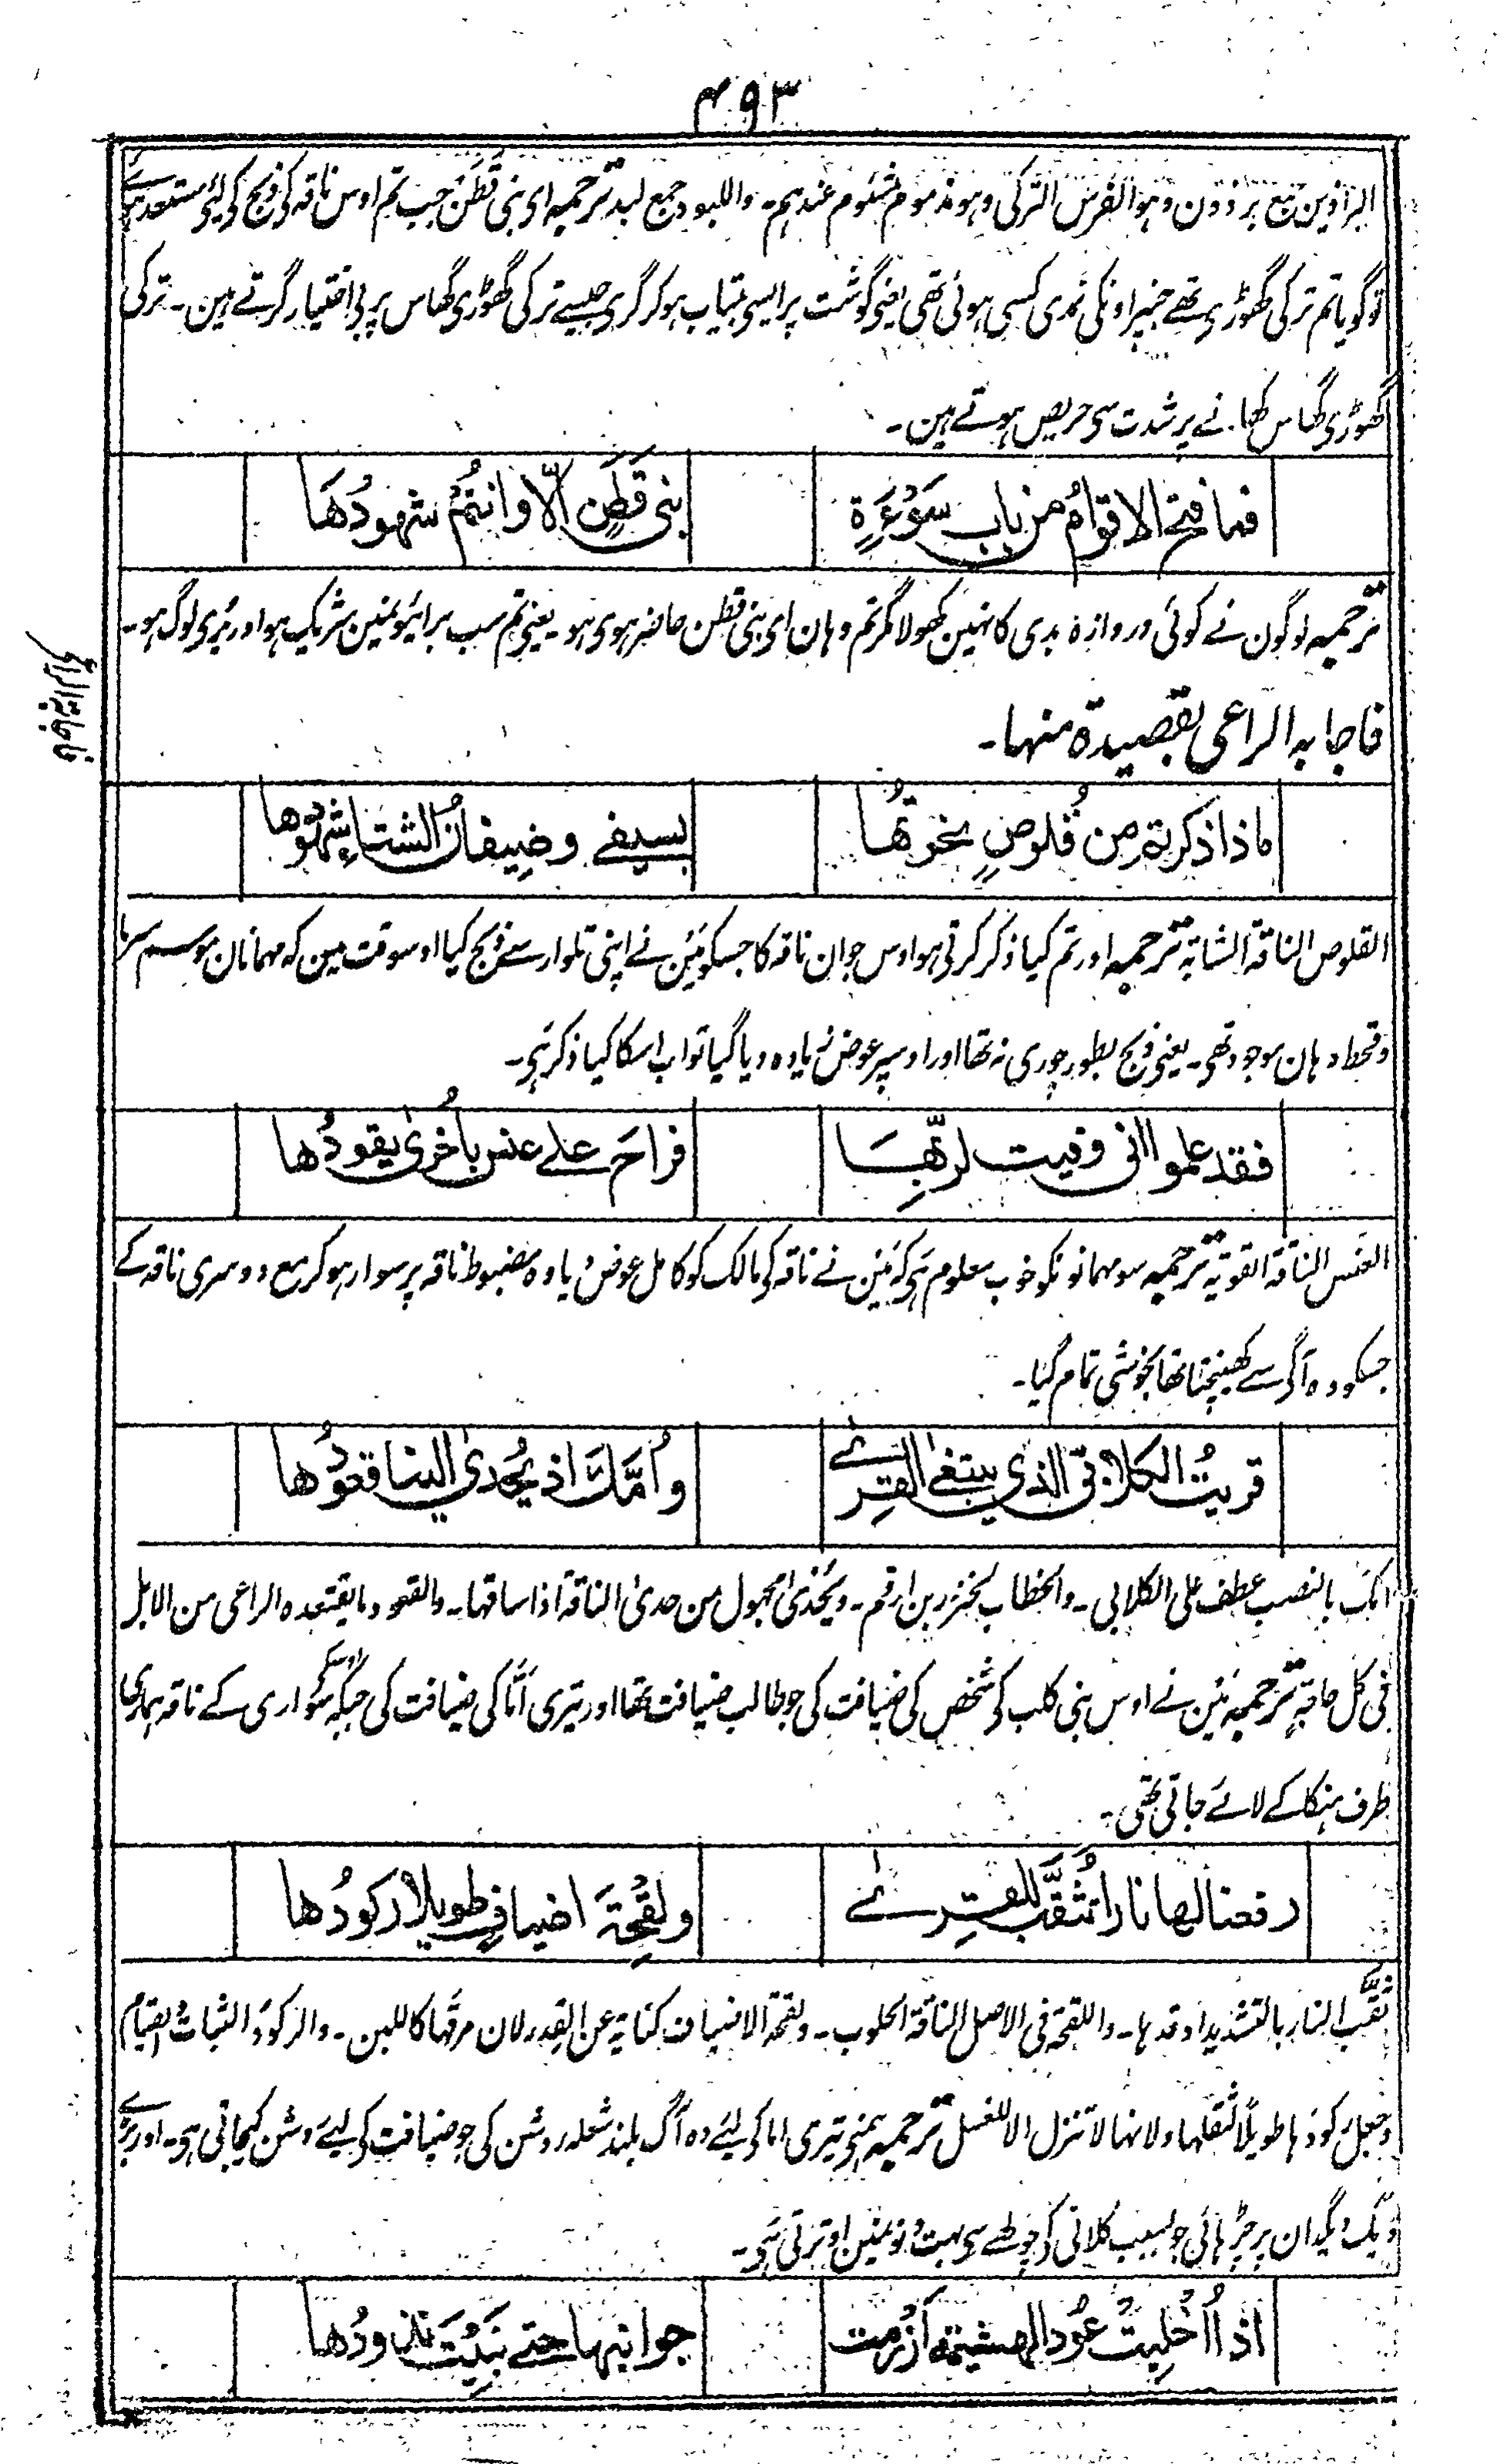 ۴۹۳
البراذین جمع برذون وہو الفرس الترکی وہو مذموم مشئوم عندہم۔ واللبود جمع لبد ترجمہ ای بنی قطن جب تم اوس ناقہ کی ذبح کی لئی مستعد ہوے
تو گویا تم ترکی گھوڑی تھے جنپر اونکی نمدی کسی ہوئی تھی یعنی گوشت پر ایسی بیتاب ہوکر گری جیسے ترکی گھوڑی گھاس پر بی اختیار گرتے ہین۔ ترکی
گھوڑی گھاس کھانے پر شدت سی حریص ہوتے ہین۔
فما فتح الاقوامُ من باب سَوْءَةٍ بنی قَطَنٍ اِلّا وانتُمْ شهودُهَا
ترجمہ لوگون نے کوئی دروازہ بدی کا نہین کھولا مگر تم وہان ای بنی قطن حاضر ہوی ہو۔ یعنی تم سب برائیونمین شریک ہو اور بُری لوگ ہو۔
فاجابہ الراعی بقصیدۃ منہا۔
ماذا ذکرتم من قُلوصٍ نحرتُها بسیفی وضِیفانُ الشتا شهودُها
القلوص الناقۃ الشابۃ ترجمہ اور تم کیا ذکر کرتی ہو اوس جوان ناقہ کا جسکو مَین نے اپنی تلوار سے ذبح کیا اوسوقت مین کہ مہمانان موسم سرما
وقحط وہان موجود تھی۔ یعنی ذبح بطور چوری نہ تھا اور اوسپر عوض زیادہ دیا گیا تو اب اسکا کیا ذکر ہَی۔
فقد علموا انی وفیت لربِّها فراحَ علے عنس باُخریٰ یقودُها
العنس الناقۃ القویۃ ترجمہ سو مہمانونکو خوب معلوم ہَی کہ مَین نے ناقہ کی مالک کو کامل عوض دیا وہ مضبوط ناقہ پر سوار ہوکر مع دوسری ناقہ کے
جسکو وہ آگی سے کھینچتا تھا بخوشی تمام گیا۔
قریتُ الکلابیّ الذی یبتغی القِرےٰ واُمَّكَ اذ یُحدیٰ الینا قعودُها
امّک بالنصب عطف علی الکلابی۔ والخطاب لخنزر بن ارقم۔ ویُحدیٰ مجہول من حدیٰ الناقۃ اذا ساقہا۔ والقعود ما یقتعدہ الراعی من الابل
فی کل حاجۃٍ ترجمہ مَین نے اوس بنی کلب کی شخص کی ضیافت کی جو طالب ضیافت تھا اور تیری امّا کی ضیافت کی جبکہ اوسکی سواری کے ناقہ ہماری
طرف ہنکا کے لائے جاتی تھی۔
رفعنا لها نارا تُثقَّبُ للقِرےٰ ولِقْحَةَ اضیافٍ طویلا رکودُها
ثَقَّبَ النار بالتشدید اوقدہا۔ واللقحۃ فی الاصل الناقۃ الحلوب۔ ولقحۃ الاضیاف کنایۃ عن القِدر لان مرقہا کاللبن۔ والرکودُ الثبات والقیام
وجعل رکودہا طویلًا لثقلہا ولانہا لا تنزل الا للغسل ترجمہ ہمنی تیری اما کی لیئے وہ آگ بلند شعلہ روشن کی جو ضیافت کی لیئے روشن کیجاتی ہی۔ اور بڑے
دیگ دیگدان پر چڑہائی جو بسبب کلانی کی چولھے سی بہت دنونمین اوترتی ہَی۔
اذا اُخْلِیَتْ عُودَ الهشیمة اَرْزَمت جوانبها حتے نَبِیْتَ نذودُها
فاجابہ الراعی